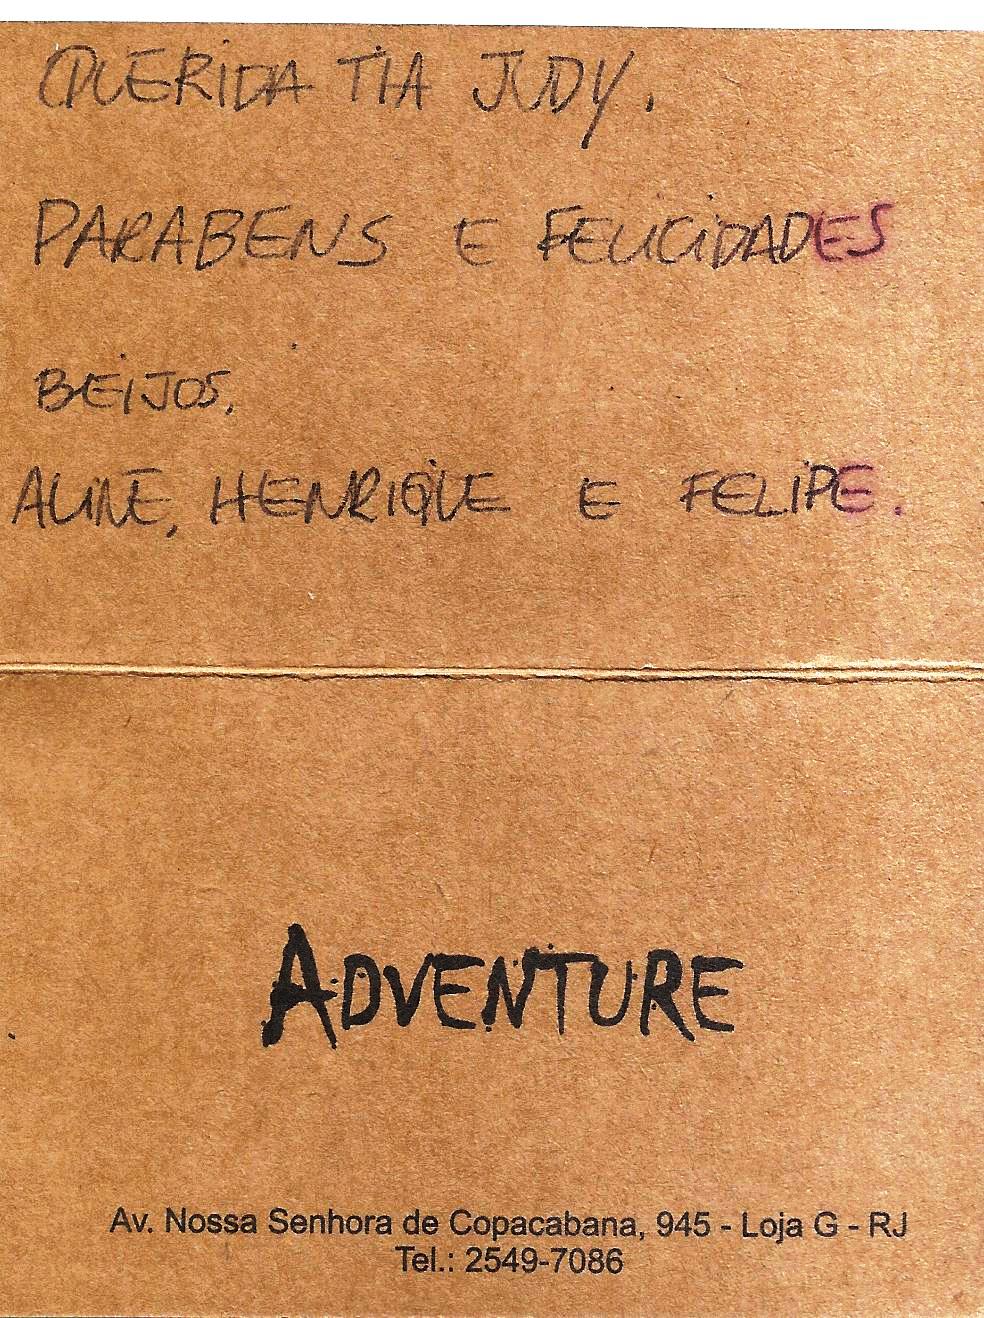 QUERIDA TIA JUDY,
PARABENS E FELICIDADES
BEIJOS,
ALINE, HENRIQUE E FELIPE.
ADVENTURE
Av. Nossa Senhora de Copacabana, 945 - Loja G - RJ
Tel.: 2549-7086